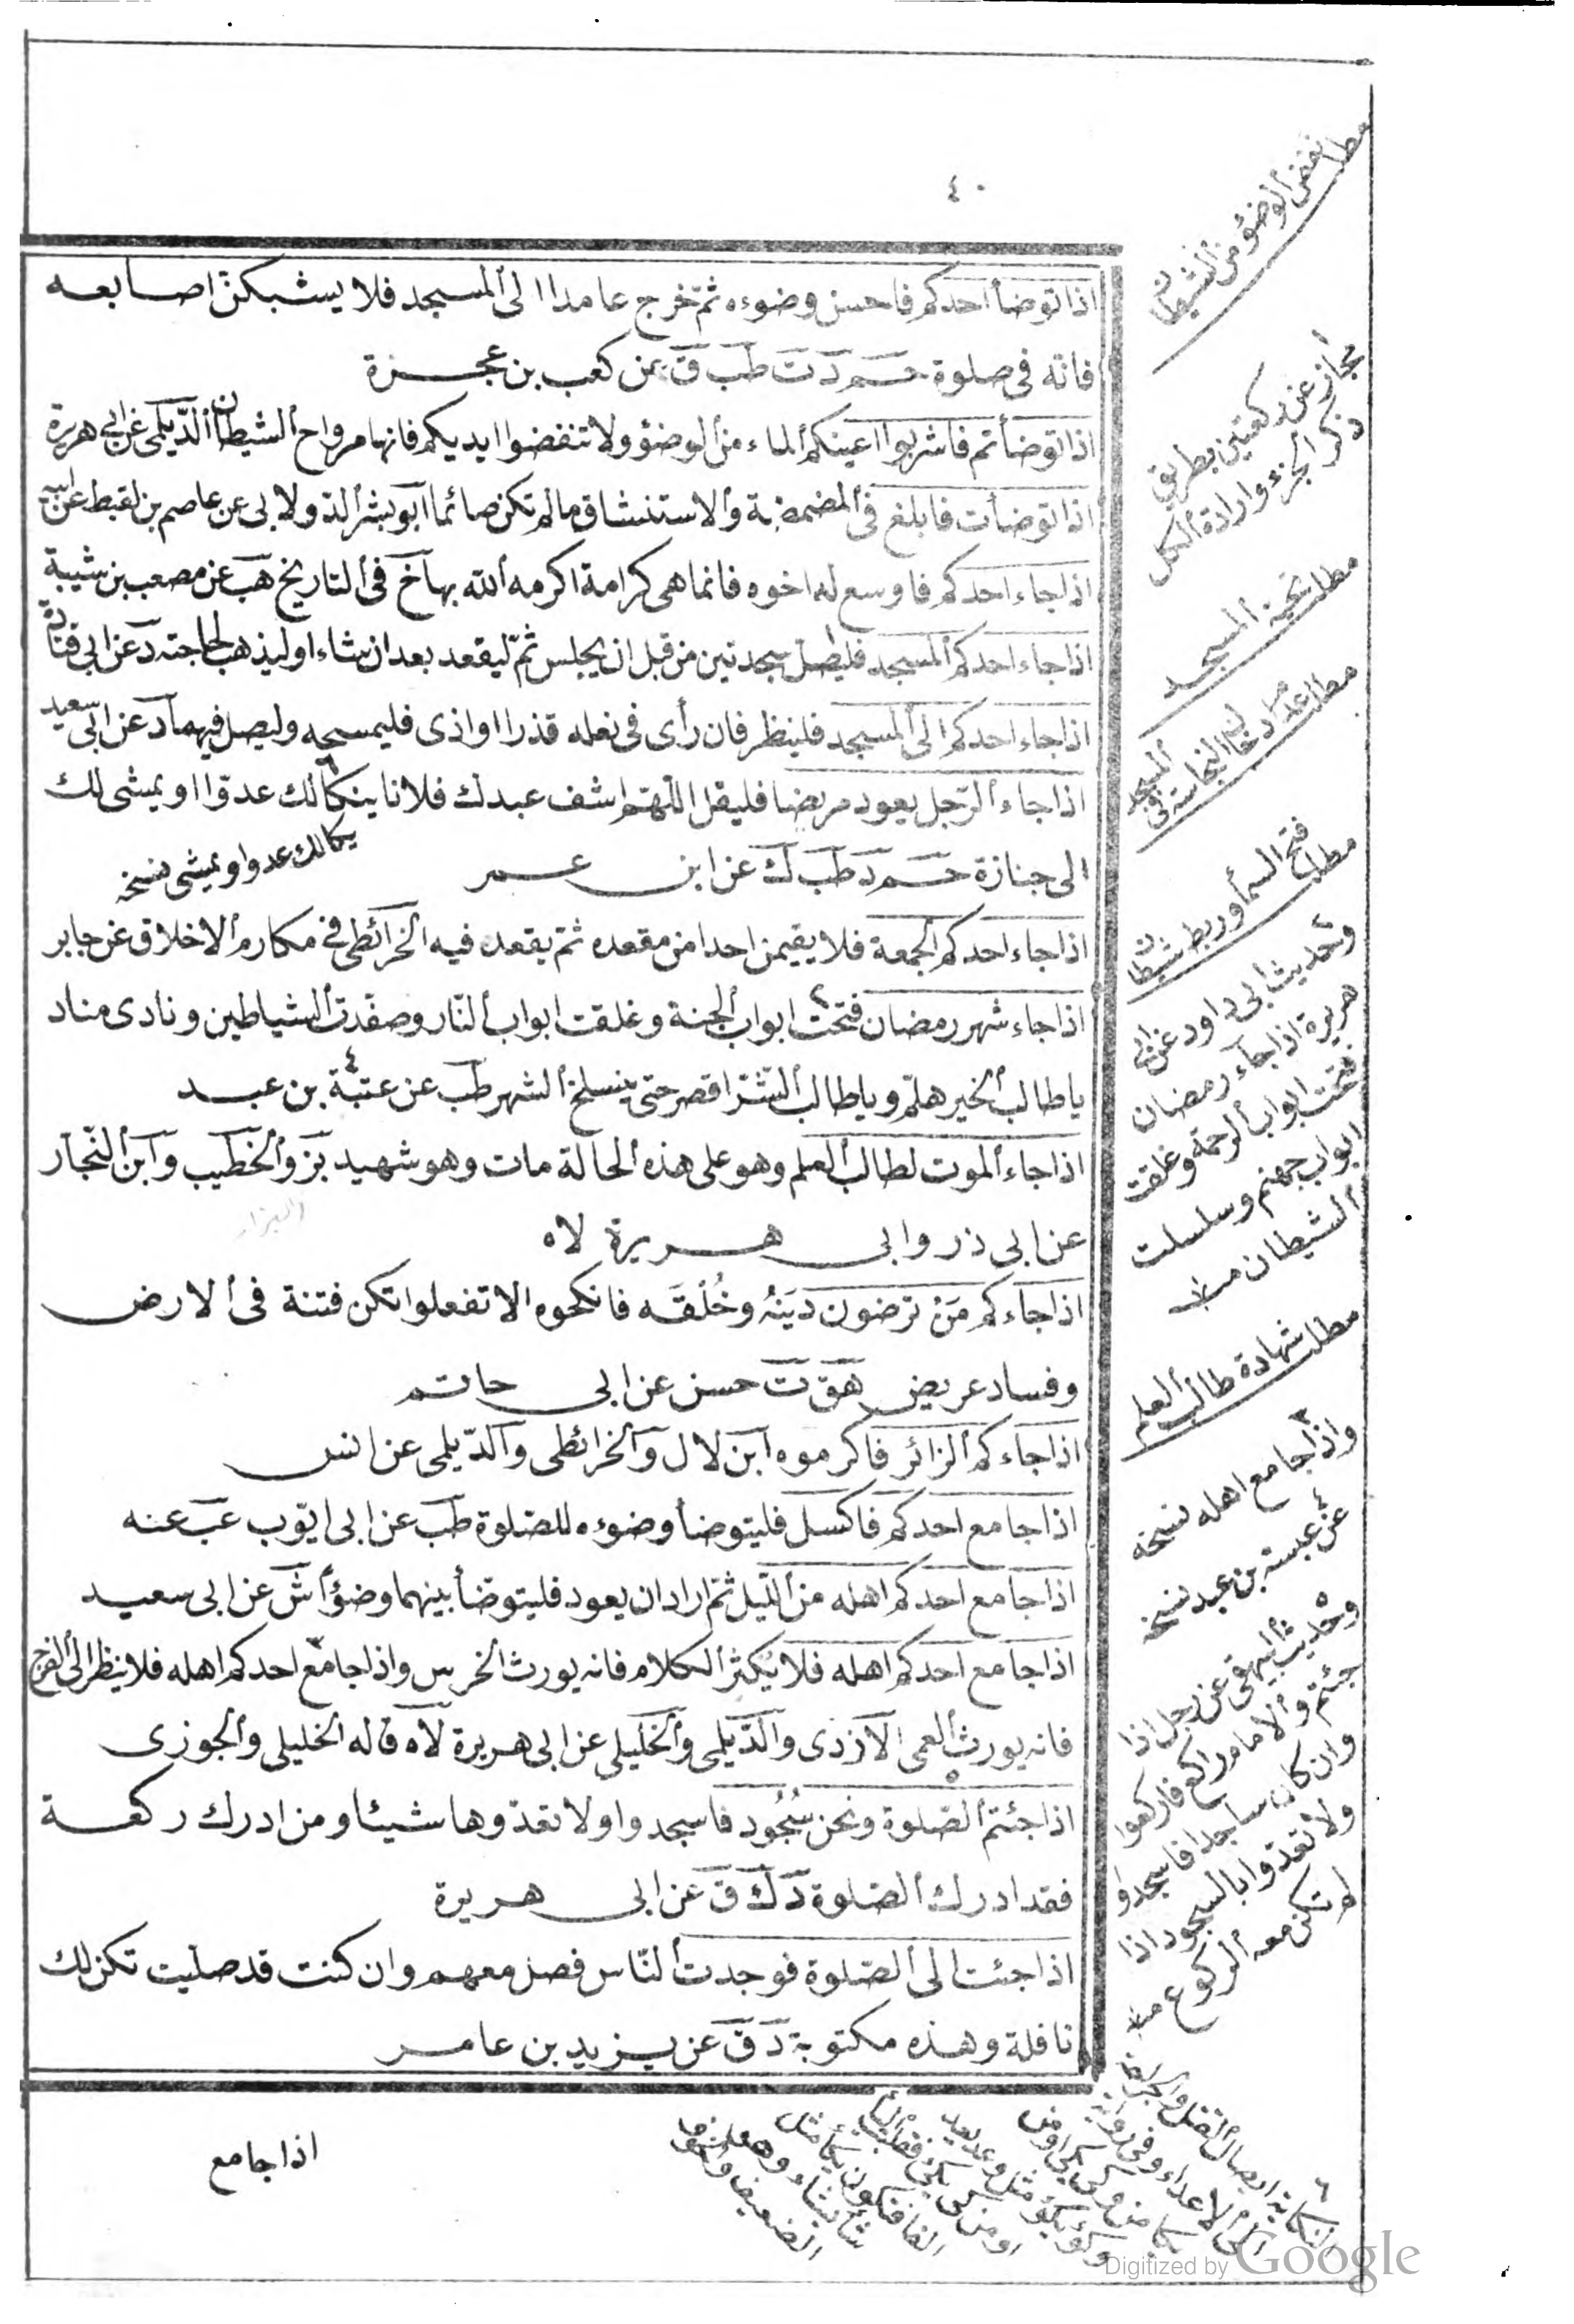 ٤٠
اذا توضأ احدكم فاحسن وضوءه ثم خرج عامدا الى المسجد فلا يشبكن اصابعه
فانه فى صلوة حم د ت طب ق عن كعب بن عجزة
اذا توضأتم فاشربوا اعينكم الماء من الوضؤ ولا تنفضوا ايديكم فانها مرواح الشيطان الديلمى عن ابى هريرة
اذا توضأت فابلغ فى المضمضة والاستنشاق ما لم تكن صائما ابو بشر الدولابى عن عاصم بن لقيط عن ابيه
اذا جاء احدكم فاوسع له اخوه فانما هى كرامة اكرمه الله بها خ فى التاريخ هب عن مصعب بن شيبة
اذا جاء احدكم المسجد فليصل سجدتين من قبل ان يجلس ثم ليقعد بعد ان شاء او ليذهب لحاجته د عن ابى قتادة
اذا جاء احدكم الى المسجد فلينظر فان رأى فى نعله قذرا او اذى فليمسحه وليصل فيهما د عن ابى سعيد
اذا جاء الرجل يعود مريضا فليقل اللهم اشف عبدك فلانا ينكالك عدوا او يمشى لك
الى جنازة حم د طب ك عن ابن عمر
يكالك عدوا ويمشى نسخه
اذا جاء احدكم الجمعة فلا يقيمن احدا من مقعده ثم يقعد فيه الخرائطى فى مكارم الاخلاق عن جابر
اذا جاء شهر رمضان فتحت ابواب الجنة وغلقت ابواب النار وصفدت الشياطين ونادى مناد
يا طالب الخير هلم ويا طالب الشر اقصر حتى ينسلخ الشهر طب عن عتبة بن عبد
اذا جاء الموت لطالب العلم وهو على هذه الحالة مات وهو شهيد بز والخطيب وابن النجار
والبزار
عن ابى ذر وابى هريرة لاه
اذا جاءكم من ترضون دينه وخلقه فانكحوه الا تفعلوا تكن فتنة فى الارض
وفساد عريض هق ت حسن عن ابى حاتم
اذا جاءكم الزائر فاكرموه ابن لال والخرائطى والديلمى عن انس
اذا جامع احدكم فاكسل فليتوضأ وضوءه للصلوة طب عن ابى ايوب عب عنه
اذا جامع احدكم اهله من الليل ثم اراد ان يعود فليتوضأ بينهما وضؤا ش عن ابى سعيد
اذا جامع احدكم اهله فلا يكثر الكلام فانه يورث الخرس واذا جامع احدكم اهله فلا ينظر الى الفرج
فانه يورث العمى الازدى والديلمى والخليلى عن ابى هريرة لاه قاله الخليلى والجوزى
اذا جئتم الصلوة ونحن سجود فاسجدوا ولا تعدوها شيئا ومن ادرك ركعة
فقد ادرك الصلوة د ك ق عن ابى هريرة
اذا جئت الى الصلوة فوجدت الناس فصل معهم وان كنت قد صليت تكن لك
نافلة وهذه مكتوبة د ق عن يزيد بن عامر
اذا جامع
مطلب نفض الوضؤ من الشيطان
مجاز عن ركعتين بطريق
ذكر الجزء وارادة الكل
مطلب تحية المسجد
مطلب عدم ادخال النجاسة فى المسجد
مطلب فتح السما وربط شيطان
وحديث ابى داود عن ابى
هريرة اذا جاء رمضان
فتحت ابواب الرحمة وغلقت
ابواب جهنم وسلسلت
الشيطان منه
مطلب شهادة طالب العلم
واذا جامع اهله نسخه
عن عبسة بن عبد نسخه
وحديث البيهقى عن رجل اذا
جئتم والامام راكع فاركعوا
وان كان ساجدا فاسجدوا
ولا تعدوا بالسجود اذا
لم تكن معه الركوع منه
النكاية ايصال القتل والجرح
الى الاعداء وفى رواية
Digitized by Google